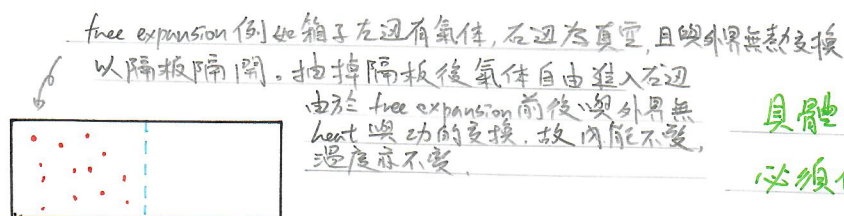 free expansion 例如箱子左边有氣体,右边為真空,且與外界無熱交換
以隔板隔開。抽掉隔板後氣体自由進入右边
由於 free expansion 前後與外界無
heat 與功的交換,故內能不變,
溫度亦不變,
具體
必須